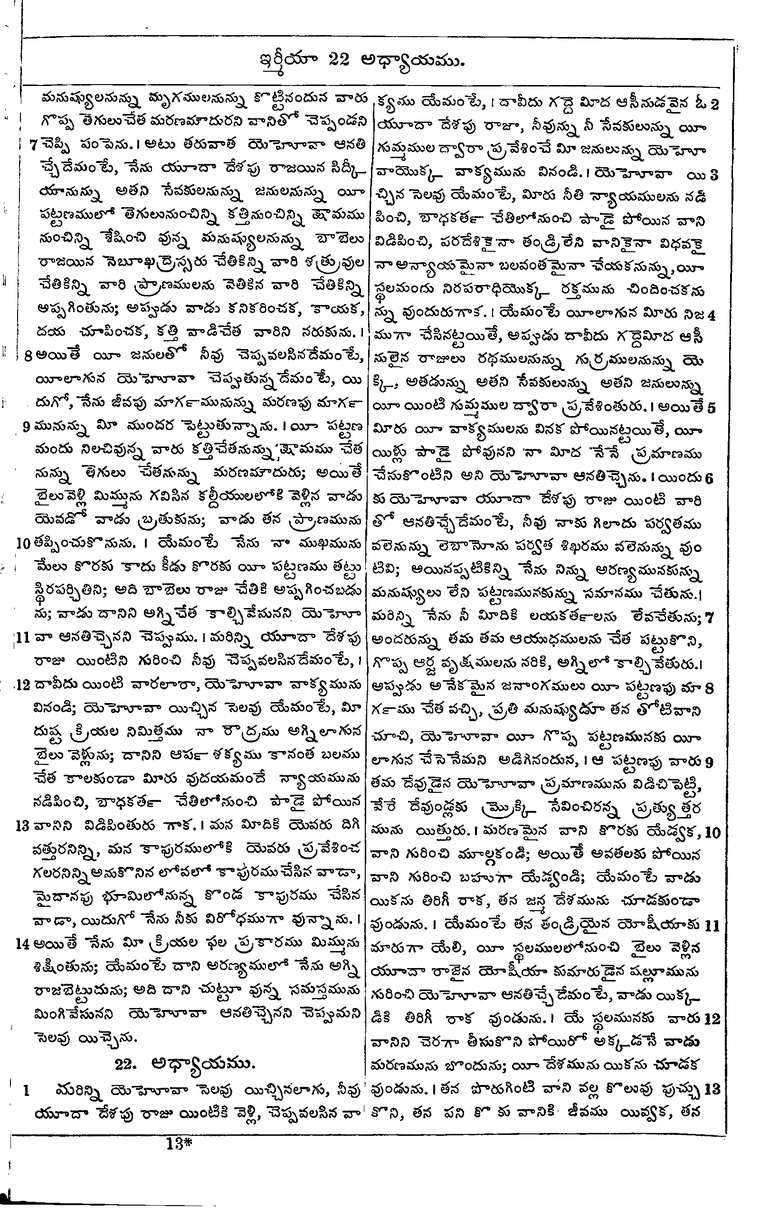 ఇర్మీయా 22 అధ్యాయము.
మనుష్యులనున్ను మృగములనున్ను కొట్టినందున వారు
గొప్ప తెగులుచేత మరణమాదురని వానితో చెప్పండని
7 చెప్పి పంపెను. । అటు తరువాత యెహోవా ఆనతి
చ్చేదేమంటే, నేను యూదా దేశపు రాజయిన సిద్కీ
యానున్ను అతని సేవకులనున్ను జనులనున్ను యీ
పట్టణములో తెగులునుంచిన్ని కత్తినుంచిన్ని క్షామము
నుంచిన్ని శేషించి వున్న మనుష్యులనున్ను బాబెలు
రాజయిన నెబూఖద్రెస్సరు చేతికిన్ని వారి శత్రువుల
చేతికిన్ని వారి ప్రాణములను వెతికిన వారి చేతికిన్ని
అప్పగింతును; అప్పుడు వాడు కనికరించక, కాయక,
దయ చూపించక, కత్తి వాడిచేత వారిని నరుకును. ।
8 అయితే యీ జనులతో నీవు చెప్పవలసినదేమంటే,
యీలాగున యెహోవా చెప్పుతున్నదేమంటే, యి
దుగో, నేను జీవపు మార్గమునున్ను మరణపు మార్గ
9 మునున్ను మీ ముందర పెట్టుతున్నాను. । యీ పట్టణ
మందు నిలచివున్న వారు కత్తిచేతనున్ను క్షామము చేత
నున్ను తెగులు చేతనున్ను మరణమాదురు; అయితే
బైలువెళ్లి మిమ్మును గవిసిన కల్దీయులలోకి వెళ్లిన వాడు
యెవడో వాడు బ్రతుకును; వాడు తన ప్రాణమును
10 తప్పించుకొనును. । యేమంటే నేను నా ముఖమును
మేలు కొరకు కాదు కీడు కొరకు యీ పట్టణము తట్టు
స్థిరపర్చితిని; అది బాబెలు రాజు చేతికి అప్పగించబడు
ను; వాడు దానిని అగ్నిచేత కాల్చివేసునని యెహో
11 వా ఆనతిచ్చెనని చెప్పుము. । మరిన్ని యూదా దేశపు
రాజు యింటిని గురించి నీవు చెప్పవలసినదేమంటే, ।
12 దావీదు యింటి వారలారా, యెహోవా వాక్యమును
వినండి; యెహోవా యిచ్చిన సెలవు యేమంటే, మీ
దుష్ట క్రియల నిమిత్తము నా రౌద్రము అగ్నిలాగున
బైలు వెళ్లును; దానిని ఆర్ప శక్యము కానంత బలము
చేత కాలకుండా మీరు వుదయమందే న్యాయమును
నడిపించి, బాధకర్త చేతిలోనుంచి పాడై పోయిన
13 వానిని విడిపింతురు గాక. । మన మీదికి యెవరు దిగి
వత్తురనిన్ని, మన కాపురములోకి యెవరు ప్రవేశించ
గలరనిన్ని అనుకొనిన లోవలో కాపురము చేసిన వాడా,
మైదానపు భూమిలోనున్న కొండ కాపురము చేసిన
వాడా, యిదుగో నేను నీకు విరోధముగా వున్నాను. ।
14 అయితే నేను మీ క్రియల ఫల ప్రకారము మిమ్మును
శిక్షింతును; యేమంటే దాని అరణ్యములో నేను అగ్ని
రాజబెట్టుదును; అది దాని చుట్టూ వున్న సమస్తమును
మింగివేసునని యెహోవా ఆనతిచ్చెనని చెప్పుమని
సెలవు యిచ్చెను.
22. అధ్యాయము.
1 మరిన్ని యెహోవా సెలవు యిచ్చినలాగు, నీవు
యూదా దేశపు రాజు యింటికి వెళ్లి, చెప్పవలసిన వా
క్యము యేమంటే, । దావీదు గద్దె మీద ఆసీనుడవైన ఓ 2
యూదా దేశపు రాజా, నీవున్ను నీ సేవకులున్ను యీ
గుమ్మముల ద్వారా ప్రవేశించే మీ జనులున్ను యెహో
వాయొక్క వాక్యమును వినండి. । యెహోవా యి 3
చ్చిన సెలవు యేమంటే, మీరు నీతి న్యాయములను నడి
పించి, బాధకర్త చేతిలోనుంచి పాడై పోయిన వాని
విడిపించి, పరదేశికైనా తండ్రిలేని వానికైనా విధవకై
నా అన్యాయమైనా బలవంతమైనా చేయకనున్ను, యీ
స్థలమందు నిరపరాధియొక్క రక్తమును చిందించకను
న్ను వుందురుగాక. । యేమంటే యీలాగున మీరు నిజ 4
ముగా చేసినట్టయితే, అప్పుడు దావీదు గద్దెమీద ఆసీ
నులైన రాజులు రథములనున్ను గుర్రములనున్ను యె
క్కి, అతడున్ను అతని సేవకులున్ను అతని జనులున్ను
యీ యింటి గుమ్మముల ద్వారా ప్రవేశింతురు. । అయితే 5
మీరు యీ వాక్యములను వినక పోయినట్టయితే, యీ
యిల్లు పాడై పోవునని నా మీద నేనే ప్రమాణము
చేసుకొంటిని అని యెహోవా ఆనతిచ్చెను. । యిందు 6
కు యెహోవా యూదా దేశపు రాజు యింటి వారి
తో ఆనతిచ్చేదేమంటే, నీవు నాకు గిలాదు పర్వతము
వలెనున్ను లెబానోను పర్వత శిఖరము వలెనున్ను వుం
టివి; అయినప్పటికిన్ని నేను నిన్ను అరణ్యమునకున్ను
మనుష్యులు లేని పట్టణమునకున్ను సమానము చేతును. ।
మరిన్ని నేను నీ మీదికి లయకర్తలను లేవచేతును; 7
అందరున్ను తమ తమ ఆయుధములను చేత పట్టుకొని,
గొప్ప ఆర్జ వృక్షములను నరికి, అగ్నిలో కాల్చివేతురు. ।
అప్పుడు అనేకమైన జనాంగములు యీ పట్టణపు మా 8
ర్గము చేత వచ్చి, ప్రతి మనుష్యుడూ తన తోటివాని
చూచి, యెహోవా యీ గొప్ప పట్టణమునకు యీ
లాగున చేసెనేమని అడిగినందున, । ఆ పట్టణపు వారు 9
తమ దేవుడైన యెహోవా ప్రమాణమును విడిచిపెట్టి,
వేరే దేవుండ్లకు మ్రొక్కి సేవించిరన్న ప్రత్యుత్తర
మును యిత్తురు. । మరణమైన వాని కొరకు యేడ్వక, 10
వాని గురించి మూల్గకండి; అయితే అవతలకు పోయిన
వాని గురించి బహుగా యేడ్వండి; యేమంటే వాడు
యికను తిరిగీ రాక, తన జన్మ దేశమును చూడకుండా
వుండును. । యేమంటే తన తండ్రియైన యోషీయాకు 11
మారుగా యేలి, యీ స్థలములలోనుంచి బైలు వెళ్లిన
యూదా రాజైన యోషీయా కుమారుడైన షల్లూమును
గురించి యెహోవా ఆనతిచ్చేదేమంటే, వాడు యిక్క
డికి తిరిగీ రాక వుండును. । యే స్థలమునకు వారు 12
వానిని చెరగా తీసుకొని పోయిరో అక్కడనే వాడు
మరణమును బొందును; యీ దేశమును యికను చూడక
వుండును. । తన పొరుగింటి వాని వల్ల కొలువు పుచ్చు 13
కొని, తన పని కొ కు వానికి జీవము యివ్వక, తన
13*